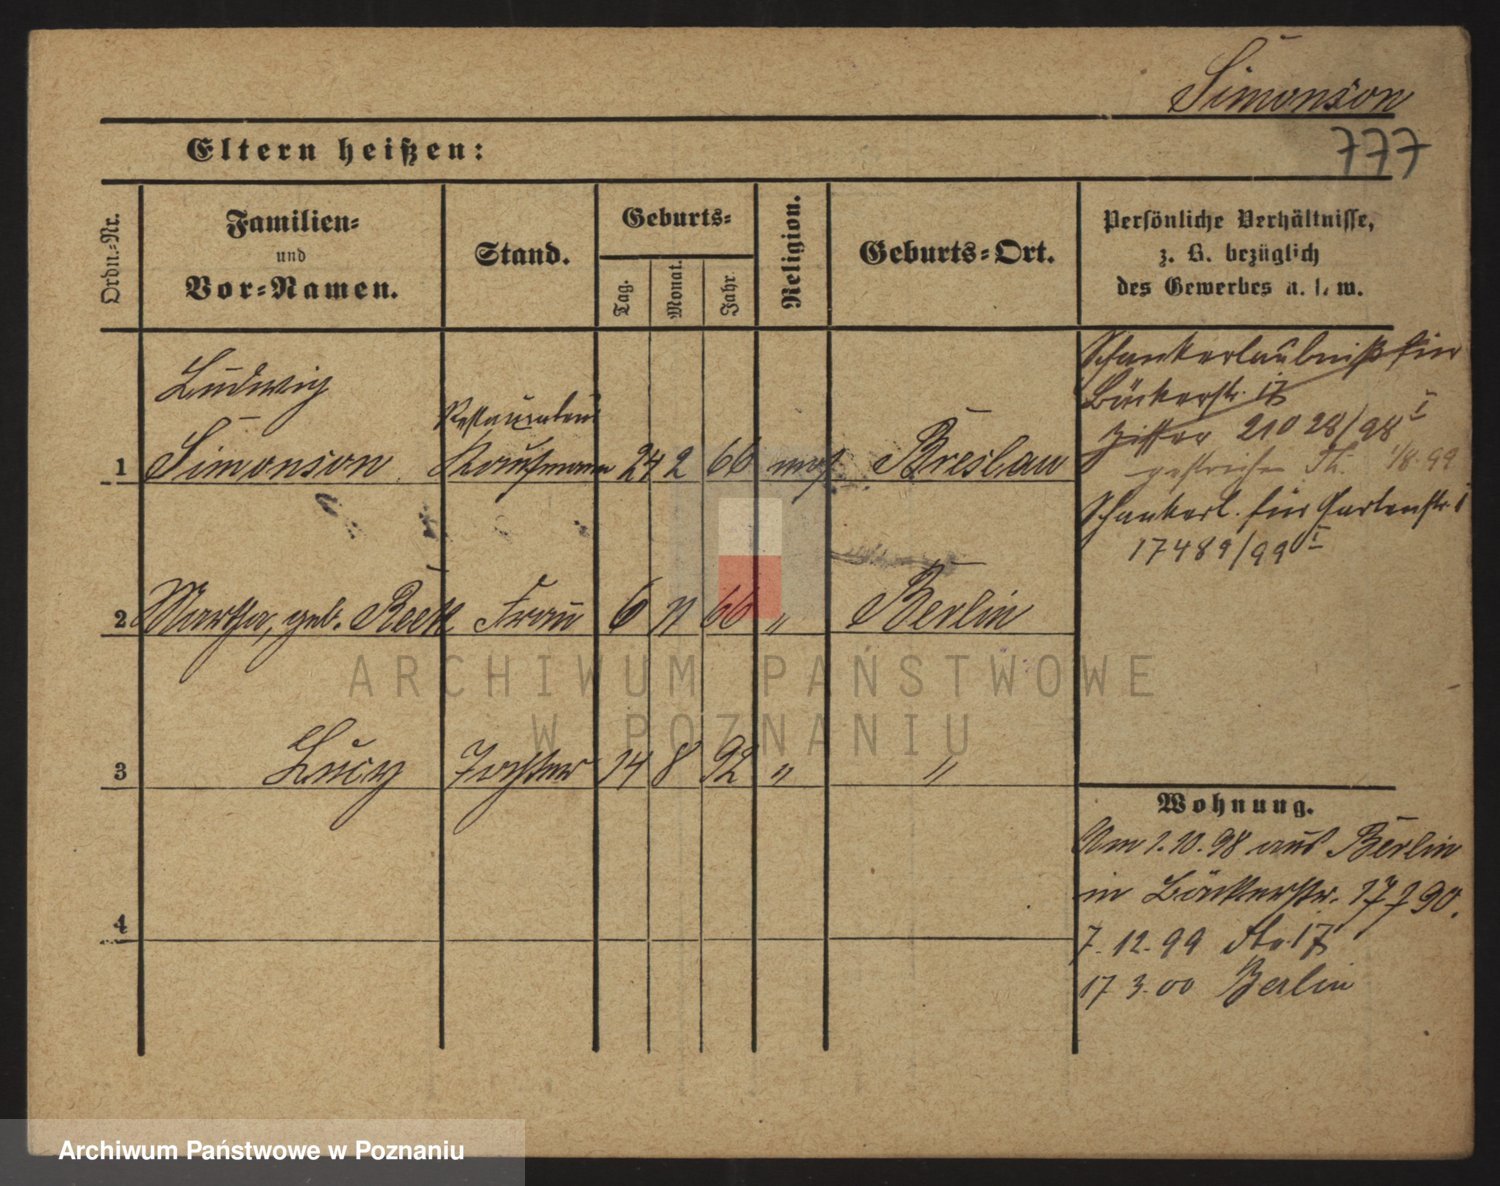 Simonson
777
Eltern heißen:
Ordn.-Nr.
Familien-
und
Vor-Namen.
Stand.
Geburts-
Tag.
Monat.
Jahr
Religion.
Geburts-Ort.
Persönliche Verhältnisse,
z. B. bezüglich
des Gewerbes u. s. w.
Ludwig
Restaurateur
1 Simonson Kaufmann 24 2 66 mos. Breslau
2 Martha, geb. Frau 6 11 66 " Berlin
3 Lucy Tochter 14 8 92 " "
4
Schankerlaubniß für
Bäckerstr. 17
21028/98 I
gestrichen 1/8.99
Schankerl. für Gartenstr. 1
17489/99 I
Wohnung.
Am 1.10.98 aus Berlin
in Bäckerstr. 17 I 90.
7.12.99 17
17 3.00 Berlin
ARCHIWUM PAŃSTWOWE
W POZNANIU
Archiwum Państwowe w Poznaniu